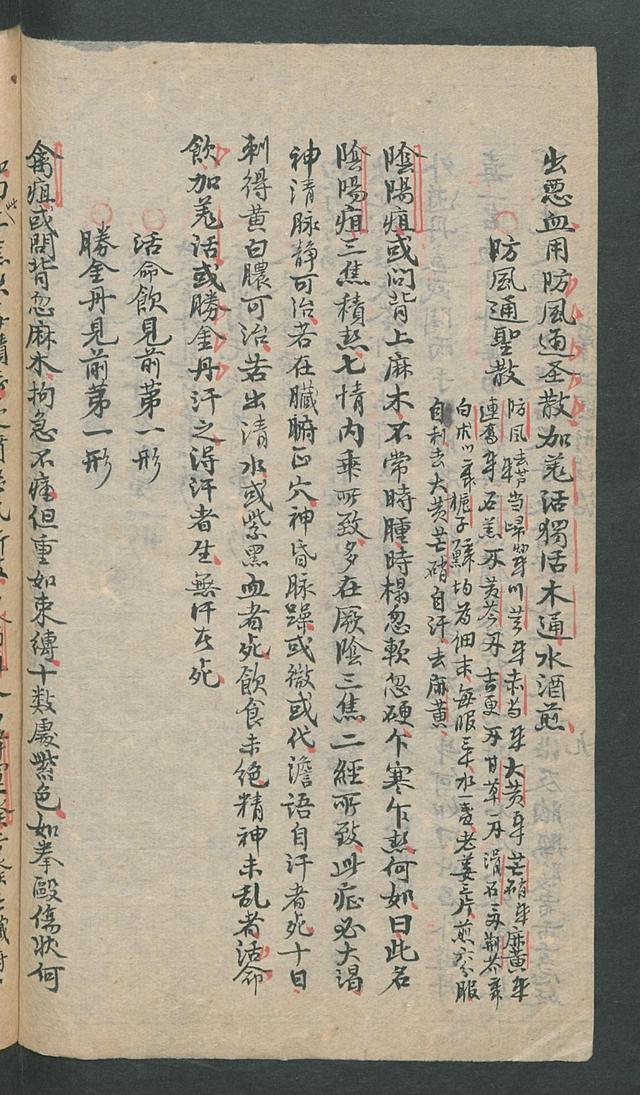 出惡血用防風通圣散加羗活獨活木通水酒煎
防風通聖散
防風去芦 当歸 川芎 赤芍 大黄 芒硝 麻黄
連喬 石羔 黄芩 吉更 甘草 滑石 荆芥
白朮 梔子 均為細末每服三 水一 老姜三片煎 服
自利去大黄芒硝自汗去麻黄
陰陽疽或问背上麻木不常時腫時榻忽軟忽硬乍寒乍熱何如曰此名
陰陽疽三焦積熱七情内乘所致多在厥陰三焦二經所致此症必大渴
神清脉静可治若在臟腑正穴神昏脉躁或微或代澹語自汗者死十日
刺得黄白膿可治若出清水或紫黑血者死飲食未绝精神未乱者活命
飲加羗活或勝金丹汗之得汗者生無汗者死
活命飲見前第一形
勝金丹見前第一形
禽疽或問背忽麻木拘急不痛但重如束縛十数處紫色如拳毆傷状何